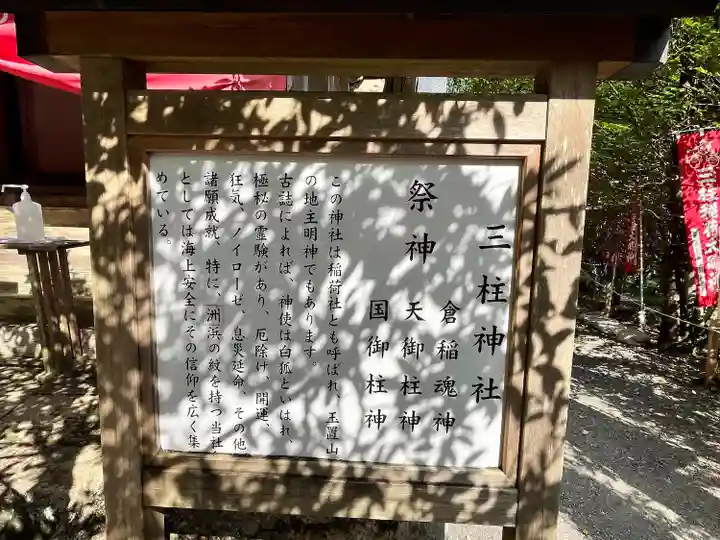 三柱神社
祭神
倉稲魂神
天御柱神
国御柱神
この神社は稲荷社とも呼ばれ、玉置山
の地主明神でもあります。
古誌によれば、神使は白狐といはれ、
極秘の霊験があり、厄除け、開運、
狂気、ノイローゼ、息災延命、その他
諸願成就、特に、洲浜の紋を持つ当社
としては海上安全にその信仰を広く集
めている。
三柱稲荷大